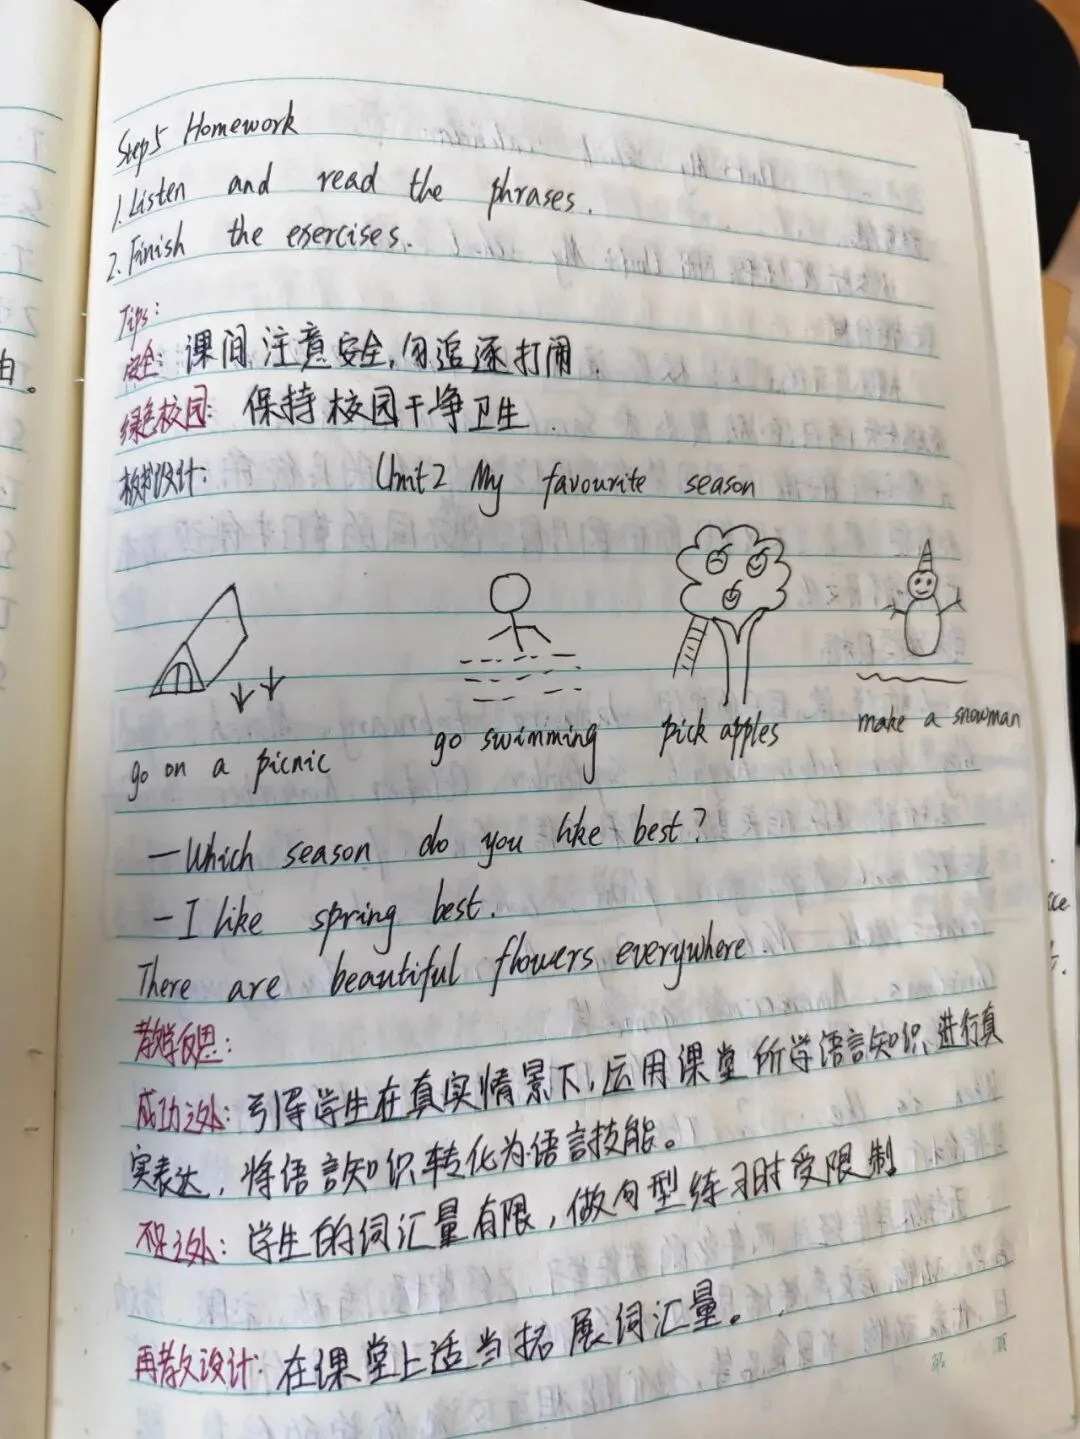 Step5 Homework
1. Listen and read the phrases.
2. Finish the exercises.
Tips:
安全: 课间注意安全,勿追逐打闹.
绿色校园: 保持校园干净卫生.
板书设计: Unit2 My favourite season
go on a picnic go swimming pick apples make a snowman
—Which season do you like best?
—I like spring best.
There are beautiful flowers everywhere.
教学反思:
成功之处: 引导学生在真实情景下,运用课堂所学语言知识进行真
实表达,将语言知识转化为语言技能。
不足之处: 学生的词汇量有限,做句型练习时受限制
再教设计: 在课堂上适当拓展词汇量。
第 页
白。